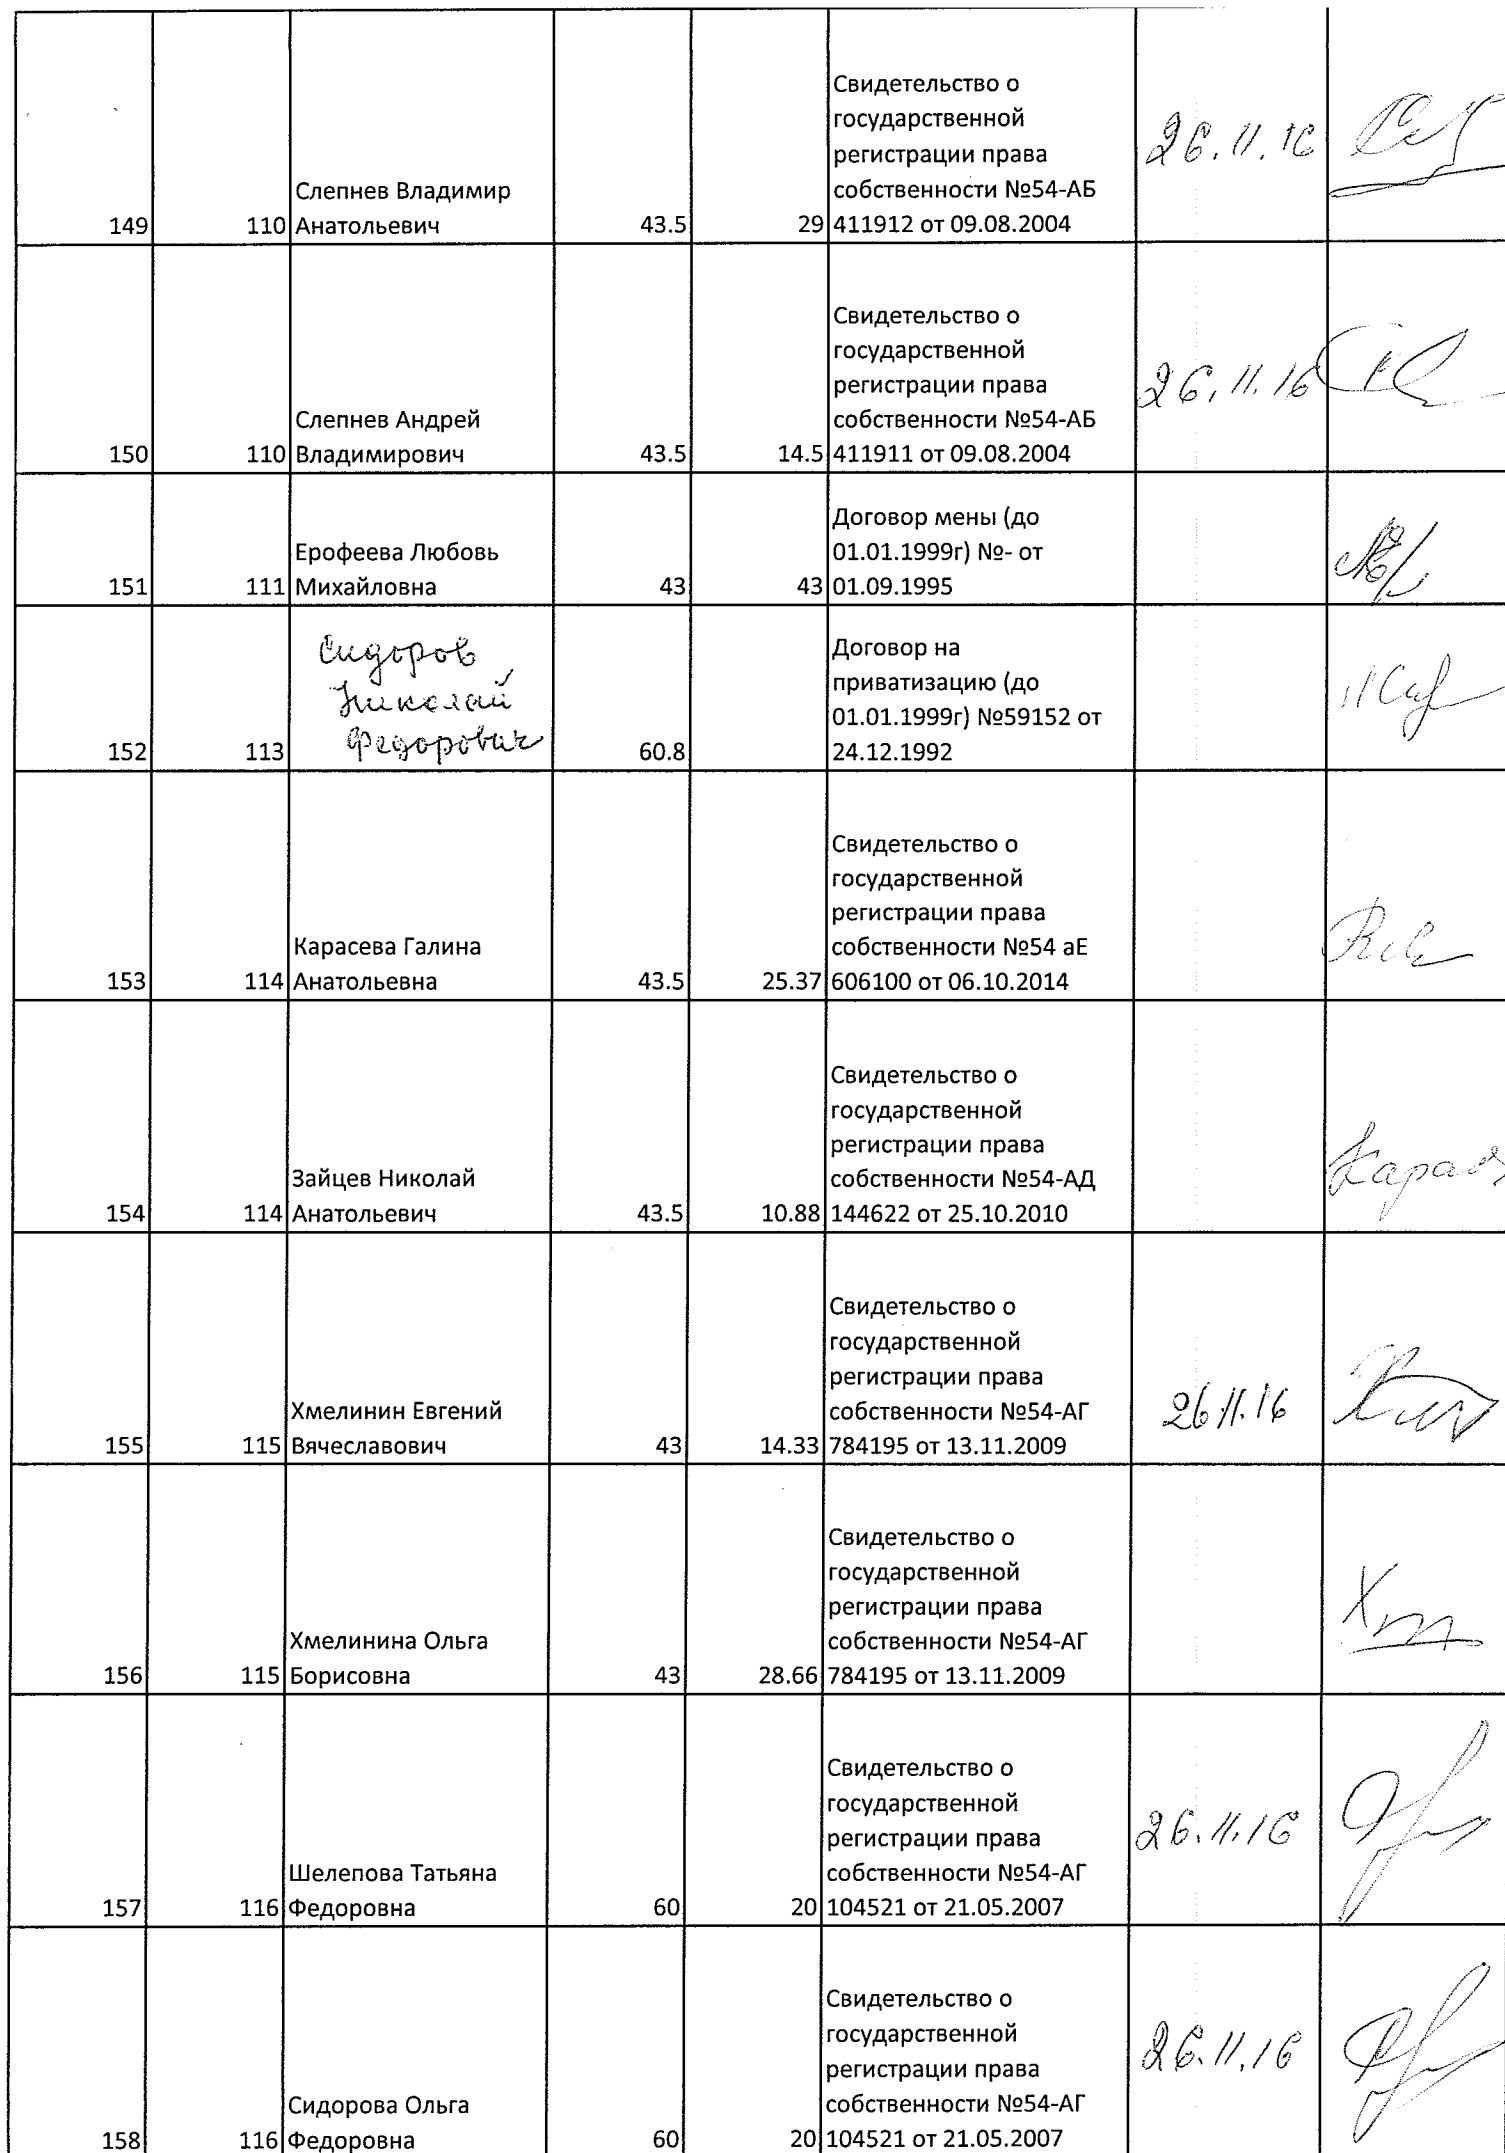 Свидетельство о
государственной
регистрации права
собственности №54-АБ
411912 от 09.08.2004
149 110 Слепнев Владимир
Анатольевич 43.5 29
26.11.16
Свидетельство о
государственной
регистрации права
собственности №54-АБ
411911 от 09.08.2004
150 110 Слепнев Андрей
Владимирович 43.5 14.5
26.11.16
Договор мены (до
01.01.1999г) №- от
01.09.1995
151 111 Ерофеева Любовь
Михайловна 43 43
152 113 Сидоров
Николай
Федорович 60.8
Договор на
приватизацию (до
01.01.1999г) №59152 от
24.12.1992
153 114 Карасева Галина
Анатольевна 43.5 25.37
Свидетельство о
государственной
регистрации права
собственности №54 аЕ
606100 от 06.10.2014
154 114 Зайцев Николай
Анатольевич 43.5 10.88
Свидетельство о
государственной
регистрации права
собственности №54-АД
144622 от 25.10.2010
155 115 Хмелинин Евгений
Вячеславович 43 14.33
Свидетельство о
государственной
регистрации права
собственности №54-АГ
784195 от 13.11.2009
26.11.16
156 115 Хмелинина Ольга
Борисовна 43 28.66
Свидетельство о
государственной
регистрации права
собственности №54-АГ
784195 от 13.11.2009
157 116 Шелепова Татьяна
Федоровна 60 20
Свидетельство о
государственной
регистрации права
собственности №54-АГ
104521 от 21.05.2007
26.11.16
158 116 Сидорова Ольга
Федоровна 60 20
Свидетельство о
государственной
регистрации права
собственности №54-АГ
104521 от 21.05.2007
26.11.16